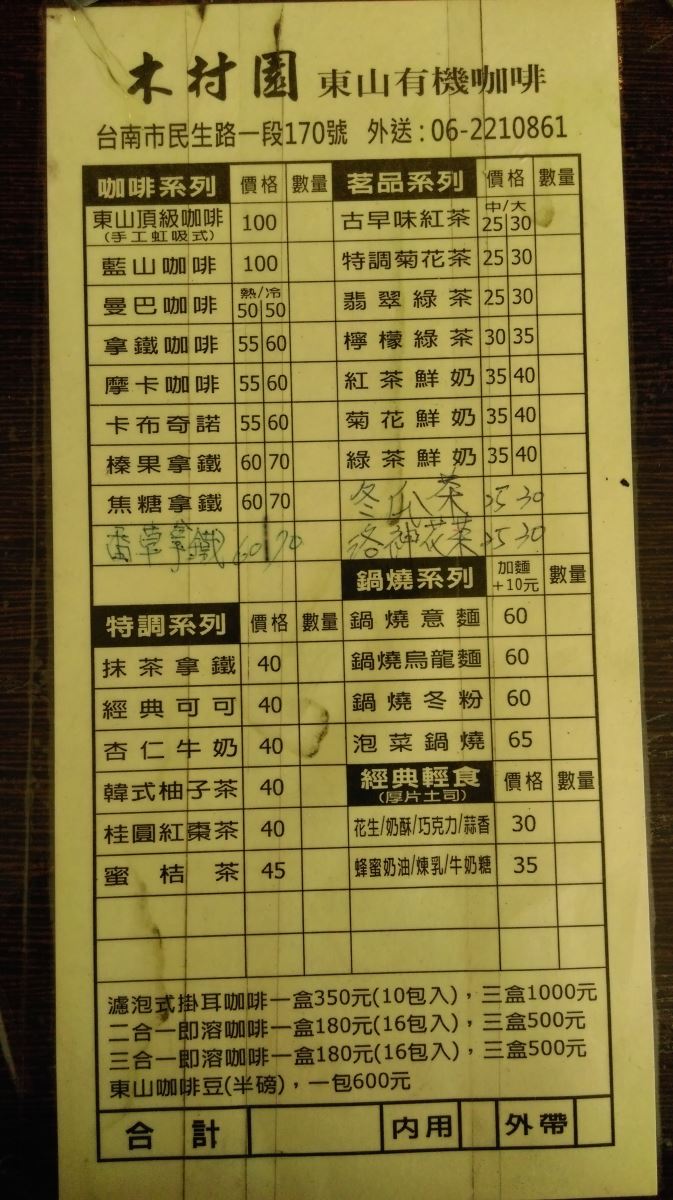 木村園 東山有機咖啡
台南市民生路一段170號 外送:06-2210861
咖啡系列 價格 數量
東山頂級咖啡 100
(手工虹吸式)
藍山咖啡 100
曼巴咖啡 熱/冷 50 50
拿鐵咖啡 55 60
摩卡咖啡 55 60
卡布奇諾 55 60
榛果拿鐵 60 70
焦糖拿鐵 60 70
香草拿鐵 60 70
特調系列 價格 數量
抹茶拿鐵 40
經典可可 40
杏仁牛奶 40
韓式柚子茶 40
桂圓紅棗茶 40
蜜桔茶 45
茗品系列 價格 數量
古早味紅茶 中/大 25 30
特調菊花茶 25 30
翡翠綠茶 25 30
檸檬綠茶 30 35
紅茶鮮奶 35 40
菊花鮮奶 35 40
綠茶鮮奶 35 40
冬瓜茶 25 30
洛神花茶 25 30
鍋燒系列 加麵+10元 數量
鍋燒意麵 60
鍋燒烏龍麵 60
鍋燒冬粉 60
泡菜鍋燒 65
經典輕食 價格 數量
(厚片土司)
花生/奶酥/巧克力/蒜香 30
蜂蜜奶油/煉乳/牛奶糖 35
濾泡式掛耳咖啡一盒350元(10包入),三盒1000元
二合一即溶咖啡一盒180元(16包入),三盒500元
三合一即溶咖啡一盒180元(16包入),三盒500元
東山咖啡豆(半磅),一包600元
合計 內用 外帶